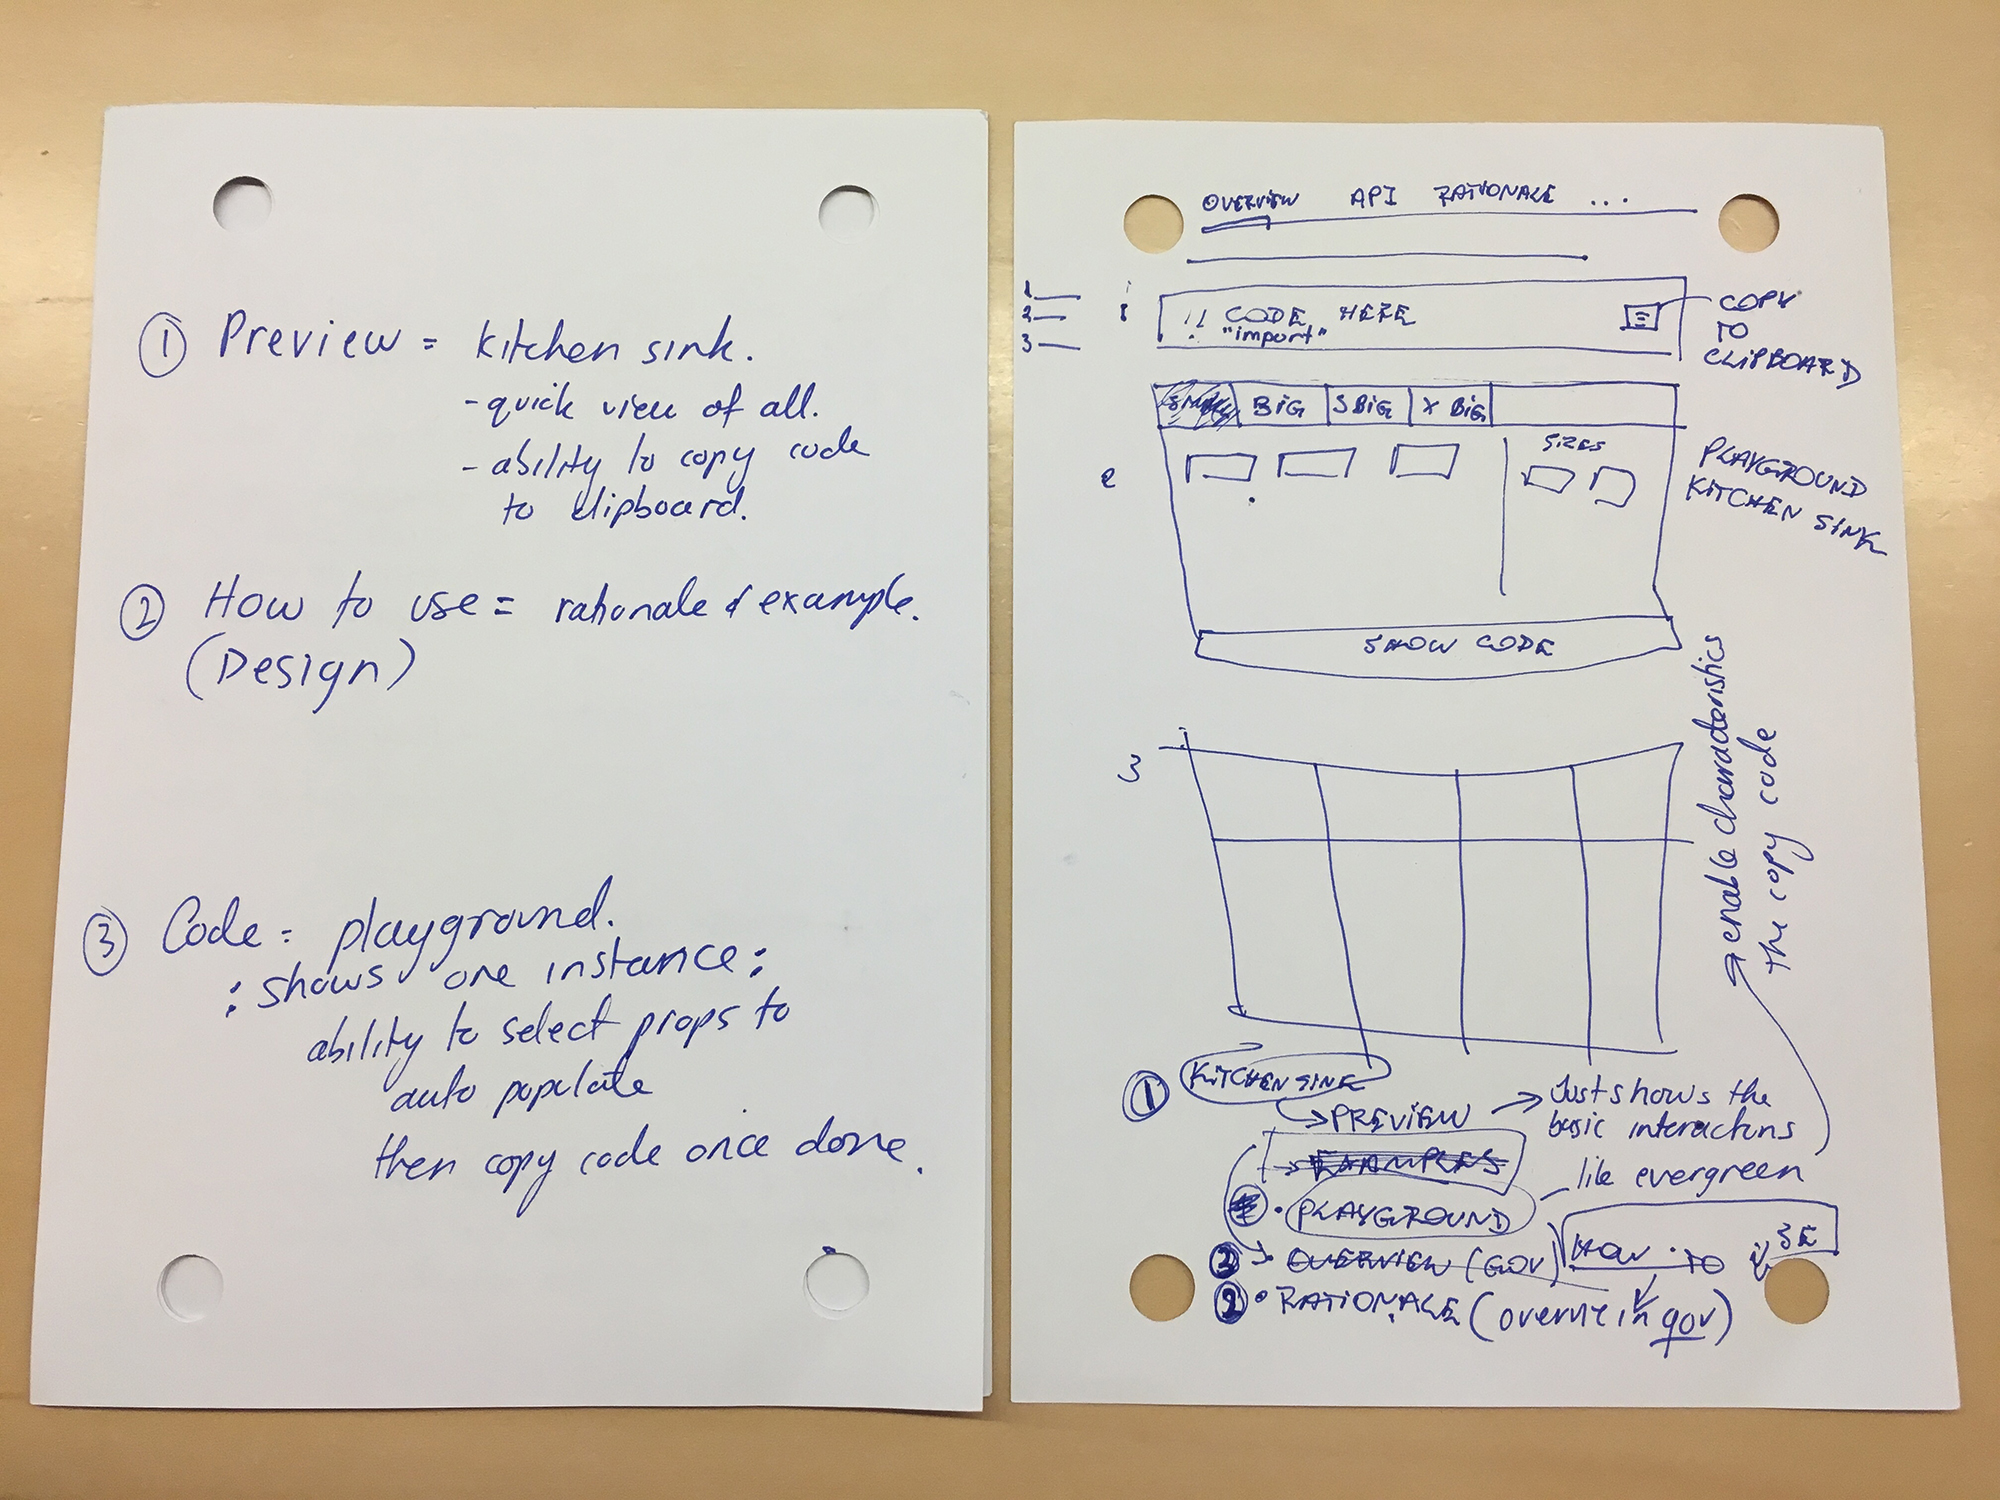 ① Preview = kitchen sink.
- quick view of all.
- ability to copy code
to clipboard.
② How to use = rationale & example.
(Design)
③ Code = playground.
: shows one instance :
ability to select props to
auto populate
then copy code once done.
OVERVIEW API RATIONALE ...
1
2
3
!! CODE HERE
"import"
COPY
TO
CLIPBOARD
BIG SBIG X BIG
SIZES
PLAYGROUND
KITCHEN SINK
SHOW CODE
3
enable characteristics
the copy code
① KITCHEN SINK
→ PREVIEW → Just shows the
basic interactions
→ EXAMPLES
like evergreen
• PLAYGROUND
HOW TO USE
③ → • OVERVIEW (GOV)
② • RATIONALE (overview in gov)